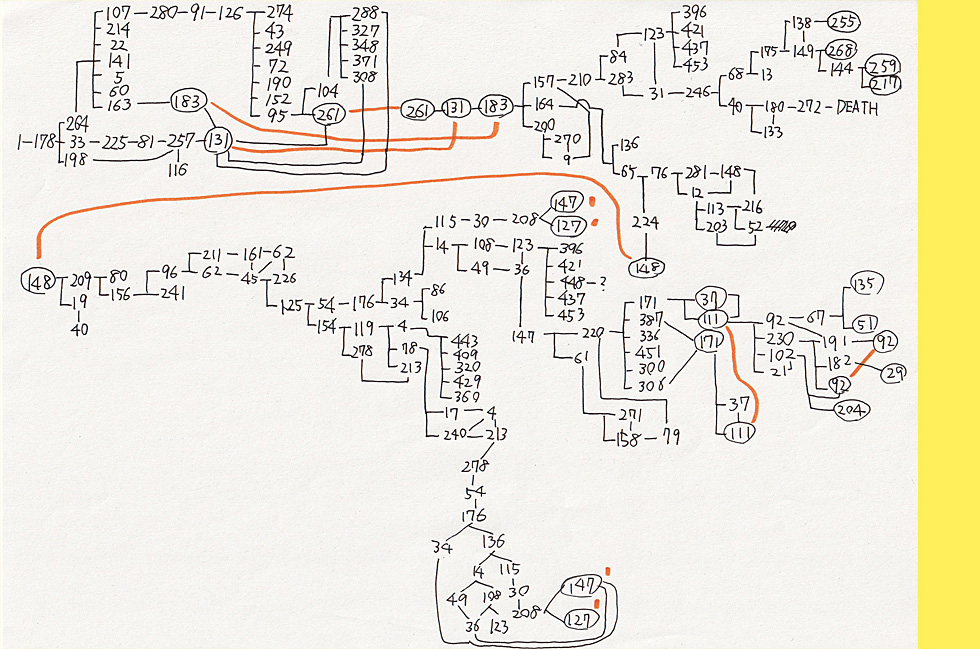 107-280-91-126-274
214
22
141
5
60
163
183
43
249
72
190
152
95
104
261
288
327
348
371
308
264
1-178-33-225-81-257-131
198
116
261 131 183
157-210
164
200
270
9
84
283
123
396
421
437
453
31-246
68
40
175
13
138-255
149
268
144
259
217
180-272-DEATH
133
136
65-76-281-148
12
113-216
203
52
224
148
148
209
19
40
80
156
96
241
211-161-62
62-45
226
125-54-176
154
134
34
86
106
115-30-208
147
127
14
108-123
49-36
396
421
448-?
437
453
147
220
61
119-4
278
78
213
443
409
320
429
360
17-4
240-213
171
387
336
451
300
306
271
158-79
37
111
171
37
111
92-67
230-191-92
102
135
51
182
29
92
204
278
54
176
34
136
14
115
49
108
30
36
123
208
147
127